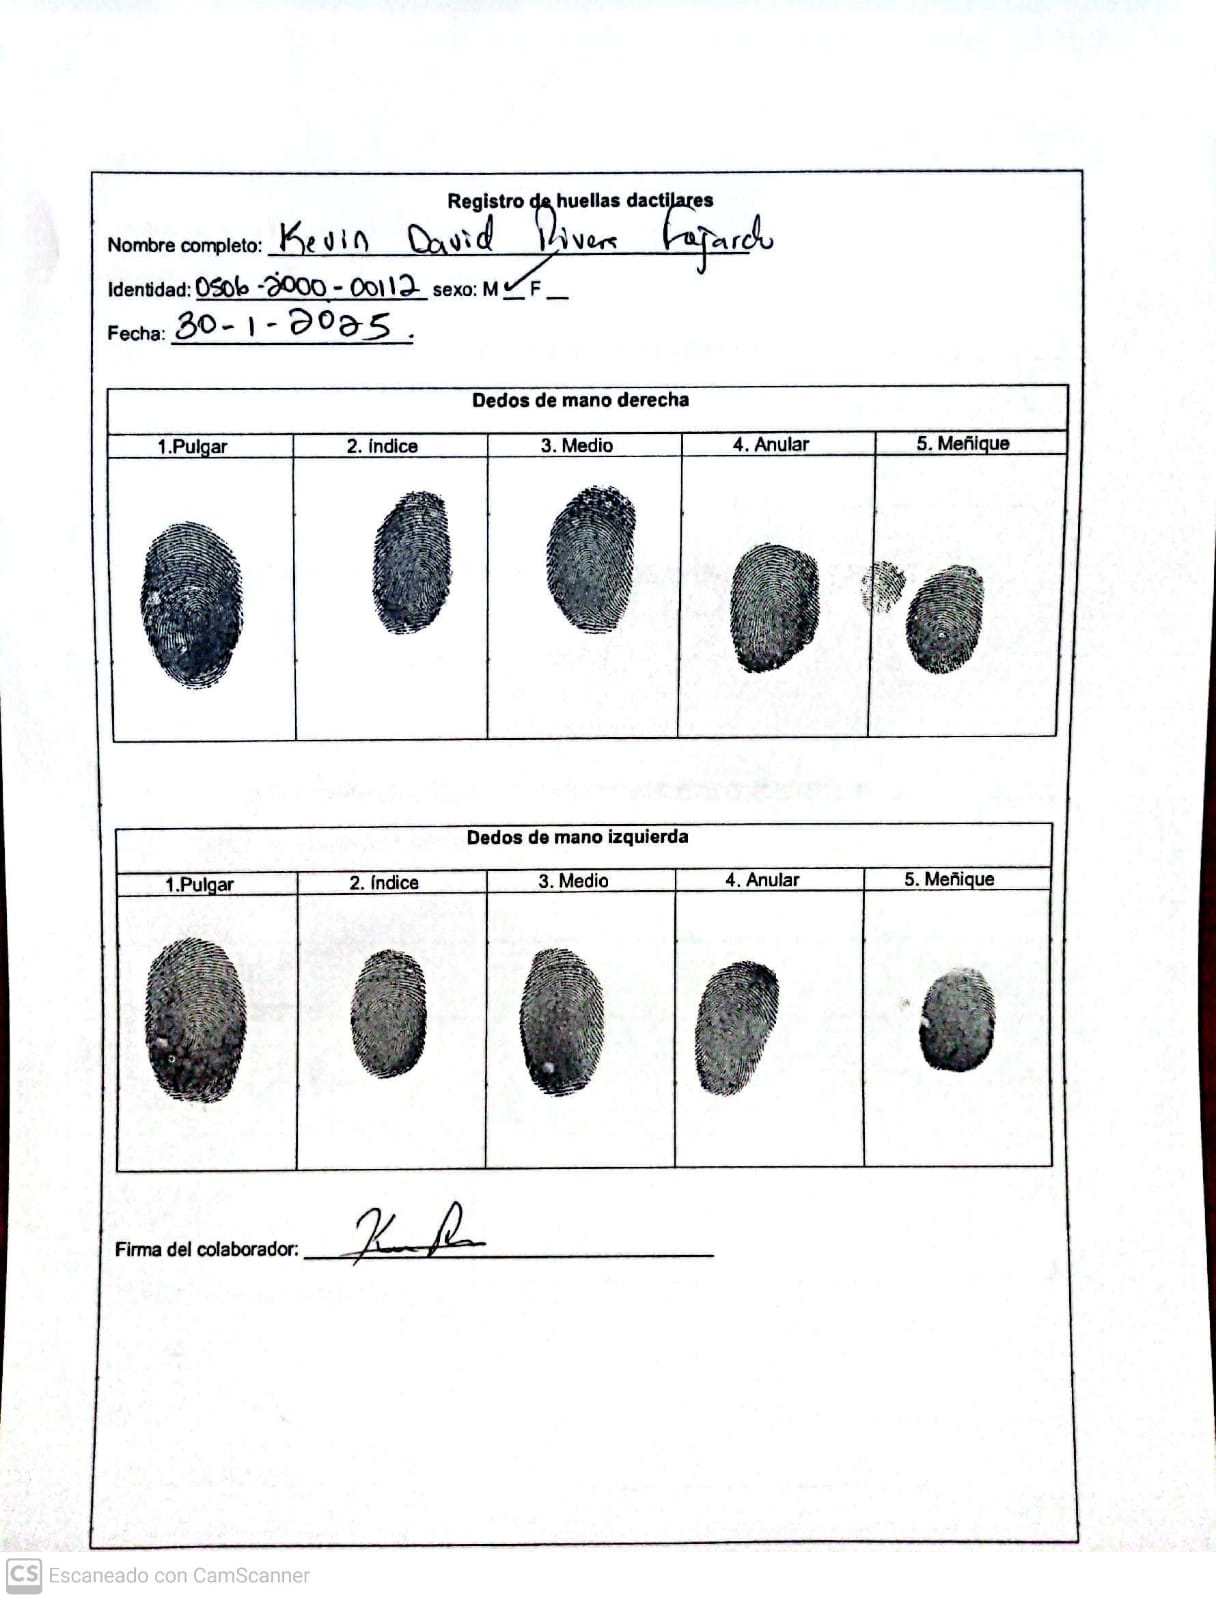 Registro de huellas dactilares
Nombre completo: Kevin David Rivera Fajardo
Identidad: 0506-2000-00112 sexo: M ✓ F _
Fecha: 30-1-2025.
Dedos de mano derecha
1.Pulgar 2. Índice 3. Medio 4. Anular 5. Meñique
Dedos de mano izquierda
1.Pulgar 2. Índice 3. Medio 4. Anular 5. Meñique
Firma del colaborador:
CS Escaneado con CamScanner